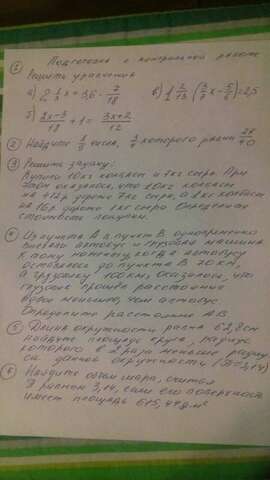 ① Подготовка к контрольной работе
Решить уравнения
а) 2 1/3 x = 3,6 - 7/18
в) 1 2/13 (3/7 x - 5/6) = 2,5
б) (2x-3)/18 + 1 = (3x+2)/12
② Найдите числа, которого равны 27/40
③ Решить задачу:
Купили 10 кг колбасы и 7 кг сыра. При
этом оказалось, что 10 кг колбасы
на дороже 7 кг сыра, а 1 кг колбасы
на 16 р дороже 1 кг сыра. Определите
стоимость покупки.
④ Из пункта А в пункт В одновременно
выехали автобус и грузовая машина
К тому моменту, когда автобусу
оставалось до пункта В 20 км,
а грузовику 100 км, оказалось, что
грузовик прошел расстояние
вдвое меньшее, чем автобус
Определите расстояние АВ.
⑤ Длина окружности равна 62,8 см
Найдите площадь круга, радиус
которого в 2 раза меньше радиу
са данной окружности (π=3,14)
⑥ Найдите объем шара, считая
π равным 3,14, если его поверхность
имеет площадь 615,44 дм²